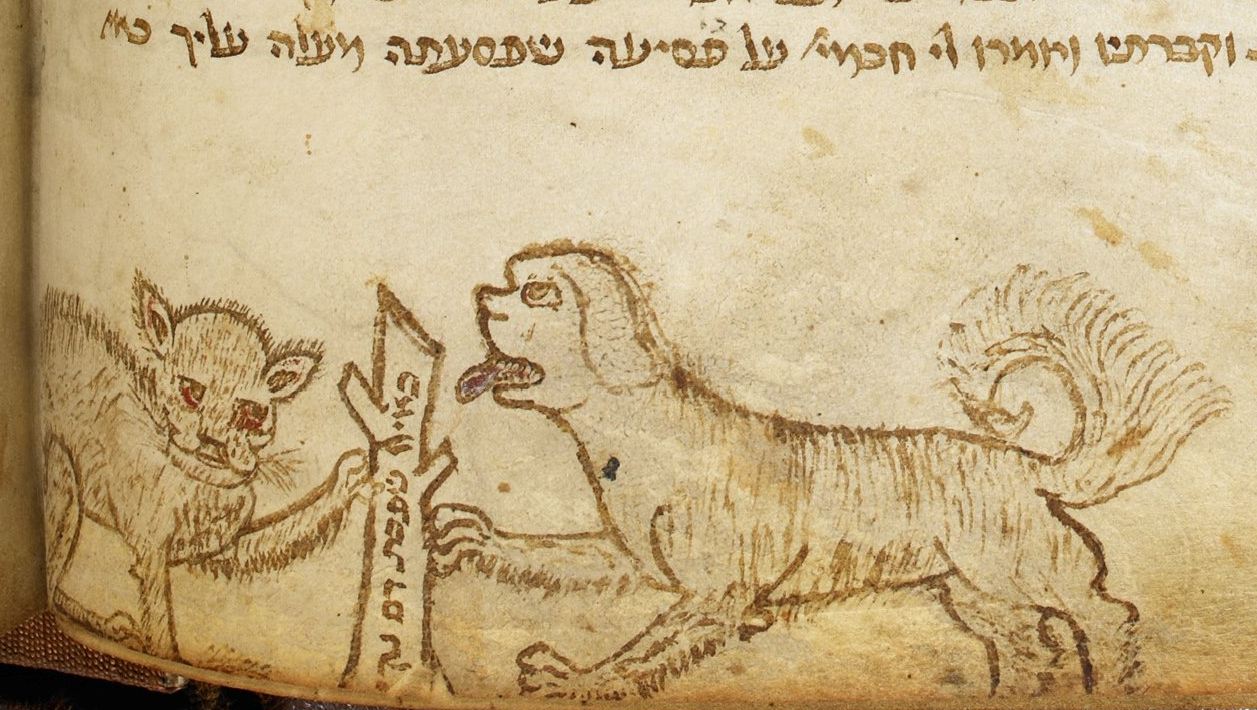 וקברתיו ואמרו לי חכמי' על פסיעה שפסעתה מעלה עליך
שפכת דם